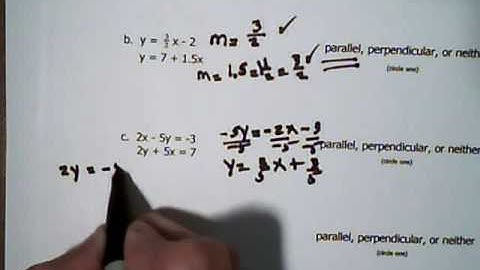 b. y = 3/2 x - 2 m = 3/2 ✓
y = 7 + 1.5x m = 1.5 = 1 1/2 = 3/2 ✓
parallel, perpendicular, or neither
(circle one)
c. 2x - 5y = -3 -5y = -2x - 3
2y + 5x = 7 y = 2/5 x + 3/5
parallel, perpendicular, or neither
(circle one)
2y = -
parallel, perpendicular, or neither
(circle one)